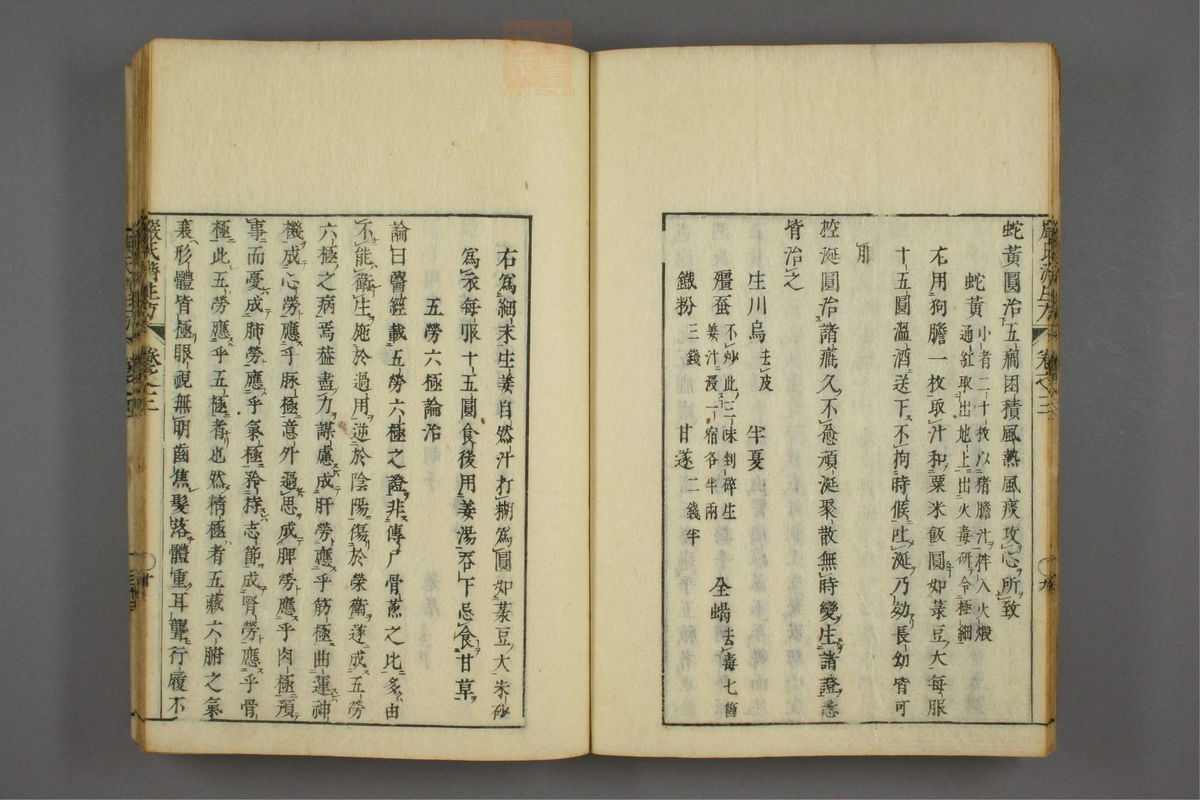 蛇黃圓治五癎因積風熱風痰攻心所致
蛇黃小者二十枚以猪膽汁拌入火煅
通紅取出地上出火毒研令極細
右用狗膽一枚取汁和粟米飯圓如菉豆大每服
十五圓溫酒送下不拘時候吐涎乃効長幼皆可
服
控涎圓治諸癎久不愈頑涎聚散無時變生諸證悉
皆治之
生川烏去皮 半夏
殭蚕不炒此三味剉碎生
姜汁浸一宿各半兩 全蝎去毒七箇
鐵粉三錢 甘遂二錢半
嚴氏濟生方 卷之三
右爲細末生姜自然汁打糊爲圓如菉豆大朱砂
爲衣每服十五圓食後用姜湯吞下忌食甘草
五勞六極論治
論曰醫經載五勞六極之證非傳尸骨蒸之比多由
不能衛生施於過用逆於陰陽傷於榮衛遂成五勞
六極之病焉蓋盡力謀慮成肝勞應乎筋極曲運神
機成心勞應乎脉極意外過思成脾勞應乎肉極預
事而憂成肺勞應乎氣極矜持志節成腎勞應乎骨
極此五勞應乎五極者也然精極者五藏六腑之氣
衰形體皆極眼視無明齒焦髮落體重耳聾行履不
嚴氏濟生方 卷之三